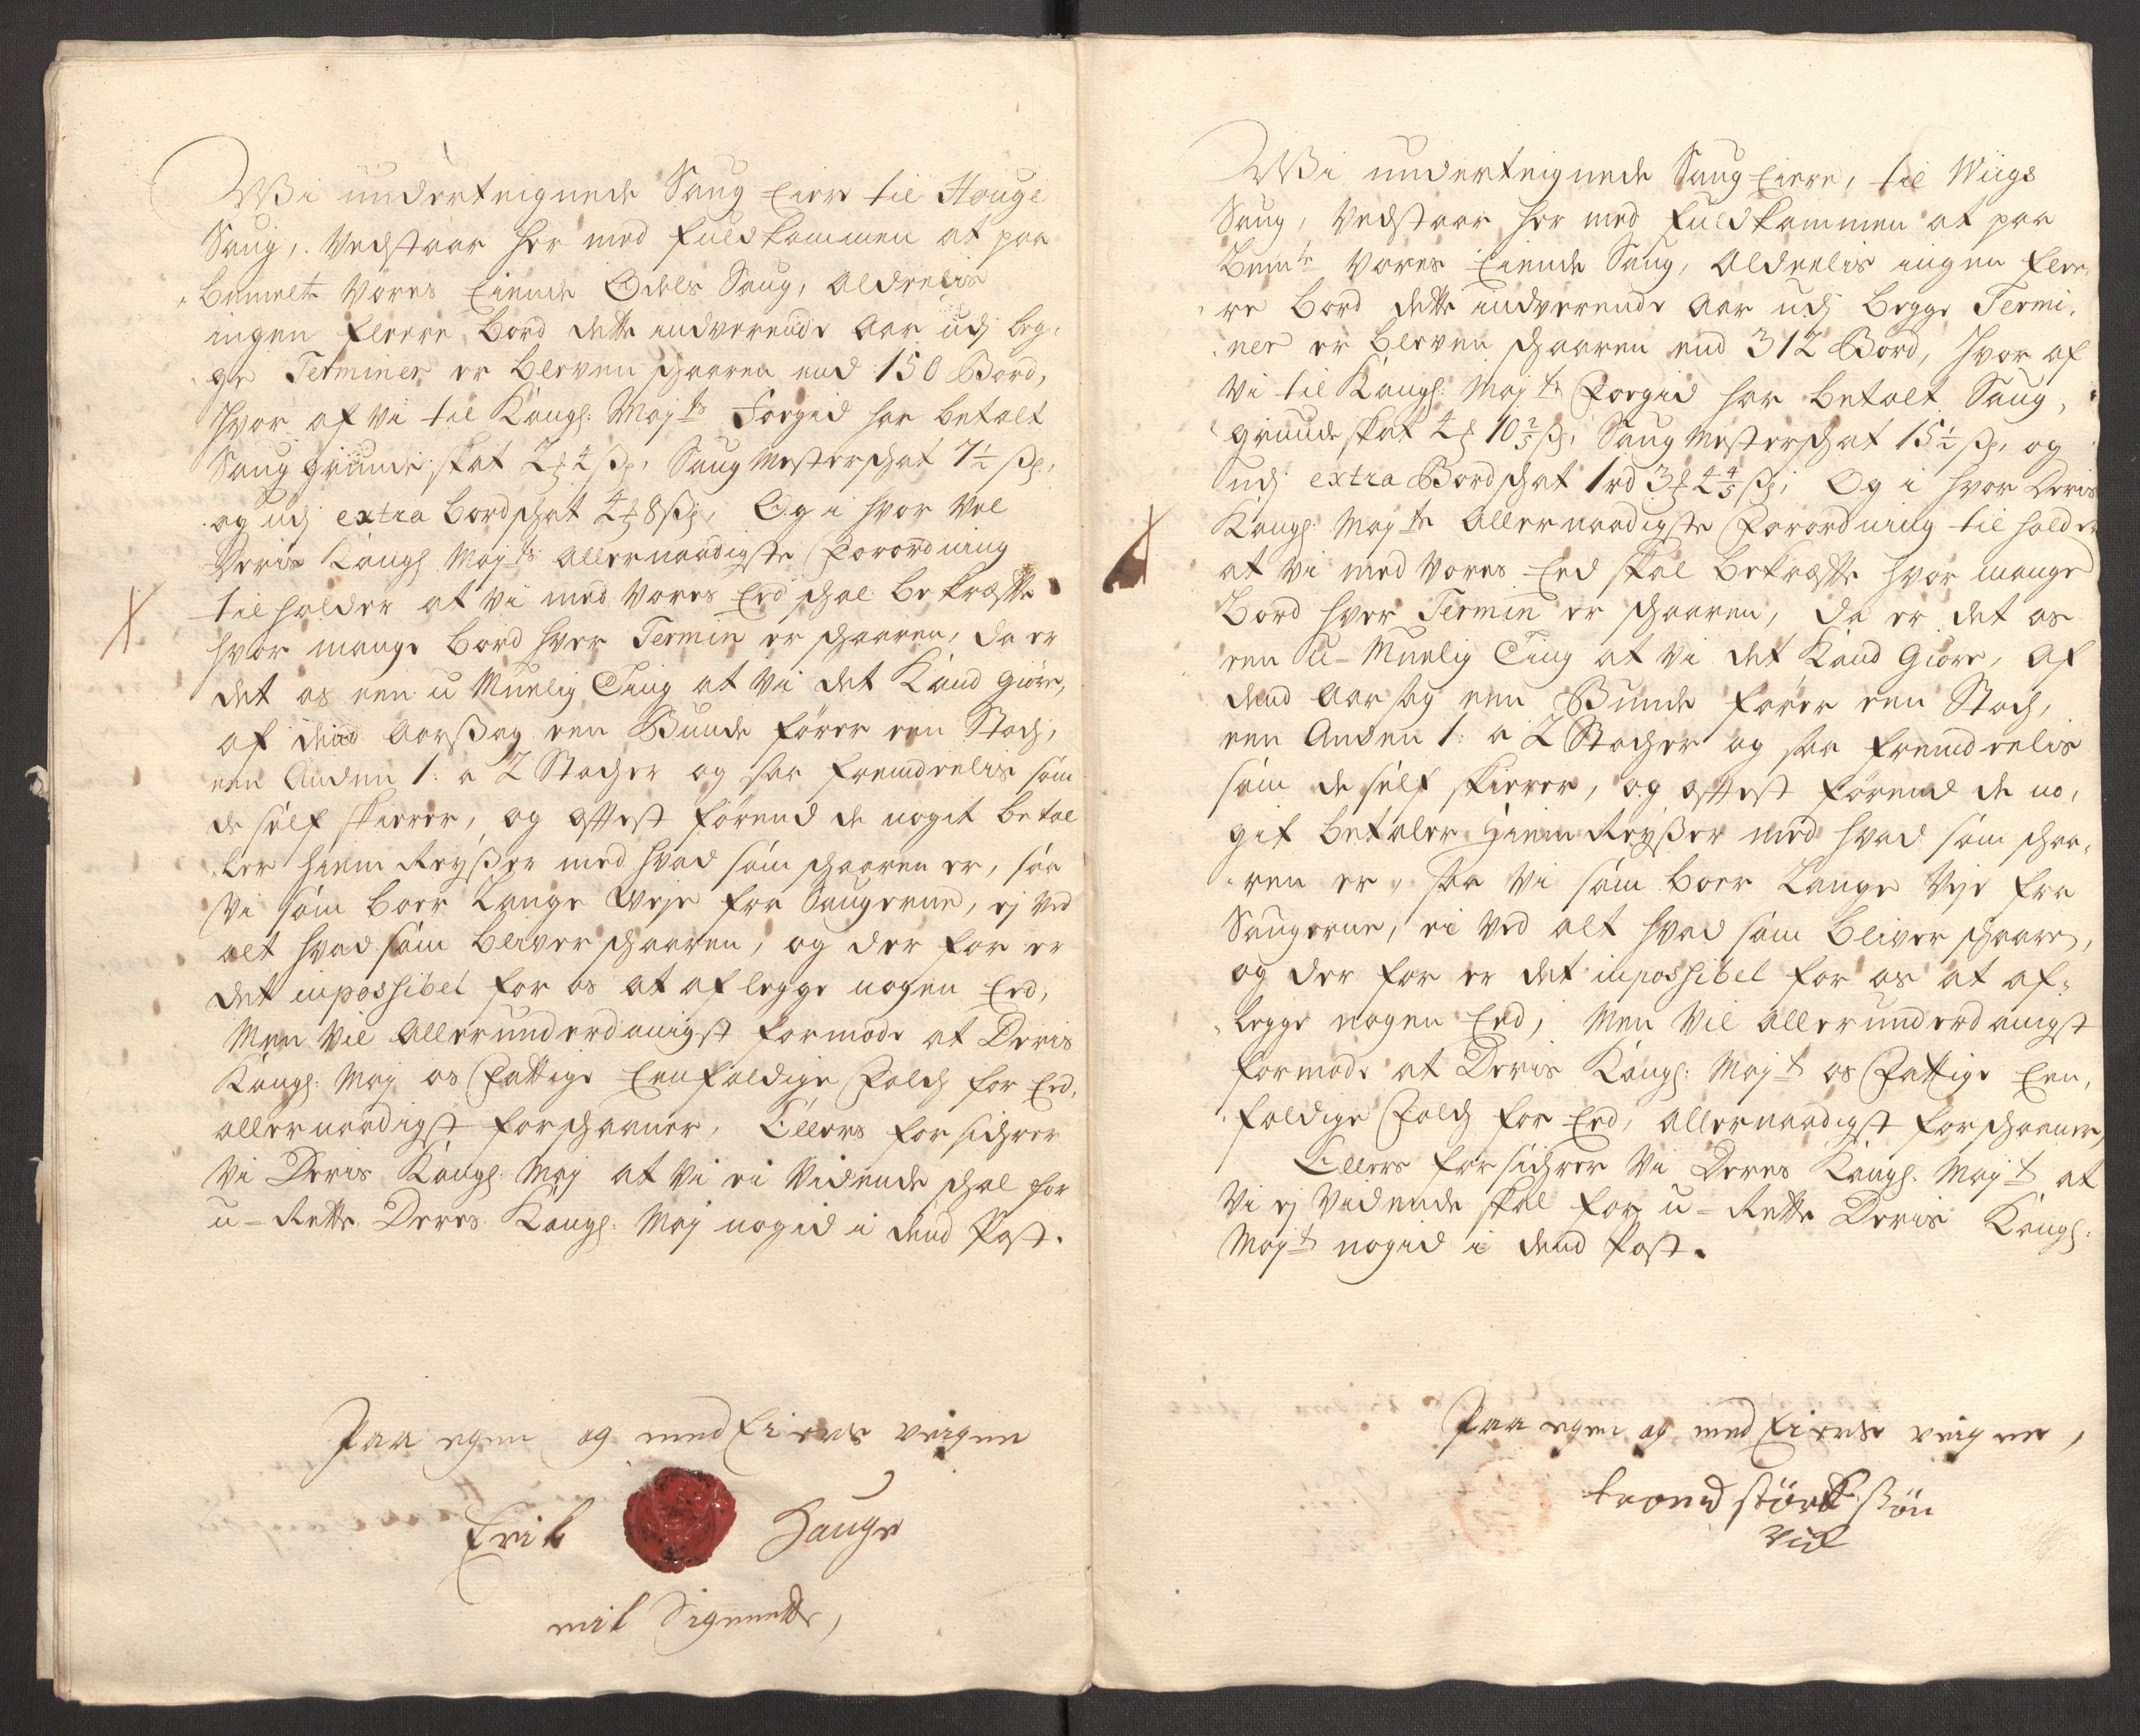 Wi underteignede Saug Eiere til Houge
Saug, Vedstaar her med fuldkommen at paa
bemelte Vores Eiende Odels Saug, Aldeelis
ingen fleere bord dette indverende Aar udj beg-
ge Terminer er bleven schaaren end 150 Bord,
hvor af Vi til Kongl: Maj:ts Forgid har betalt
Saug grunde skat 2 ¼ 4 ßl, Saug Mesterschat 7½ ßl,
og udj extra bordschat 4 ¼ 8 ßl, Og i hvor Vel
Deris Kongl Maj:ts Allernaadigste Forordning
tilholder at Vi med Vores Eed schal bekræfte
hvor mange bord hver Termin er schaaren, da er
det os een u Muelig Ting at Vi det Kand Giöre,
af dend Aarßag een Bunde fører een Stoch,
een Anden 1: a 2 Stocher og saa fremdeelis som
de self skierer, og oftest förend de nogit betal
ler hiem Reyßer med hvad som schaaren er, saa
Vi som boer Lange Veje fra Saugerne, ej Ved
alt hvad som bliver schaaren, og der for er
det inpossibel for os at aflegge nogen Eed,
Men Vil Allerunderdanigst formode at Deris
Kongl: Maj os Fattige Eenfoldige Folch for Eed,
allernaadigst forschaaner, Ellers forsichrer
Vi Deris Kongl: Maj at Vi ei Vidende schal for
u-Rette Deres Kongl: Maj nogid i dend Post.
Paa egen og med Eieres veigne
Erik Hauge
mit Signnette,
Wi underteignede Saug Eiere, til Wiigs
Saug, Vedstaar her med fuldkommen at paa
Bemte Vores Eiende Saug, Aldeelis ingen flee-
re bord dette indverende Aar udj begge Termi-
ner er bleven schaaren end 312 Bord, hvor af
Vi til Kongl: Maj:ts Forgid har betalt Saug,
grunde skat 4 ¼ 10 2/5 ßl, Saug Mesterschat 15½ ßl, og
udj extra Bordschat 1 rd 3 ¼ 4 4/5 ßl, Og i hvor Deris
Kongl: Maj:ts Allernaadigste Forordning tilholder
at Vi med Vores Eed skal bekræfte hvor mange
Bord hver Termin er schaaren, da er det os
een U-Muelig Ting at Vi det Kand Giöre, Af
dend Aarsag een Bunde fører een Stoch,
een Anden 1: a 2 Stocher og saa fremdeelis
som de self skierer, og oftest förend de no-
git betaler Hiem Reyßer med hvad som schaa-
ren er, saa Vi som boer Lange Veje fra
Saugerne, ei Ved alt hvad som bliver schaare,
og der for er det inpossibel for os at af-
legge nogen Eed, Men Vil Allerunderdanigst
formode at Deris Kongl: Maj:t os Fattige Een-
foldige Folch for Eed, Allernaadigst forschaaner,
Ellers forsichrer Vi Deres Kongl: Maj:t at
Vi ej Vidende skal for u-Rette Deris Kongl:
Maj:t nogid i dend Post.
Paa egen og med Eieres veigne,
trond störckßön
Vick